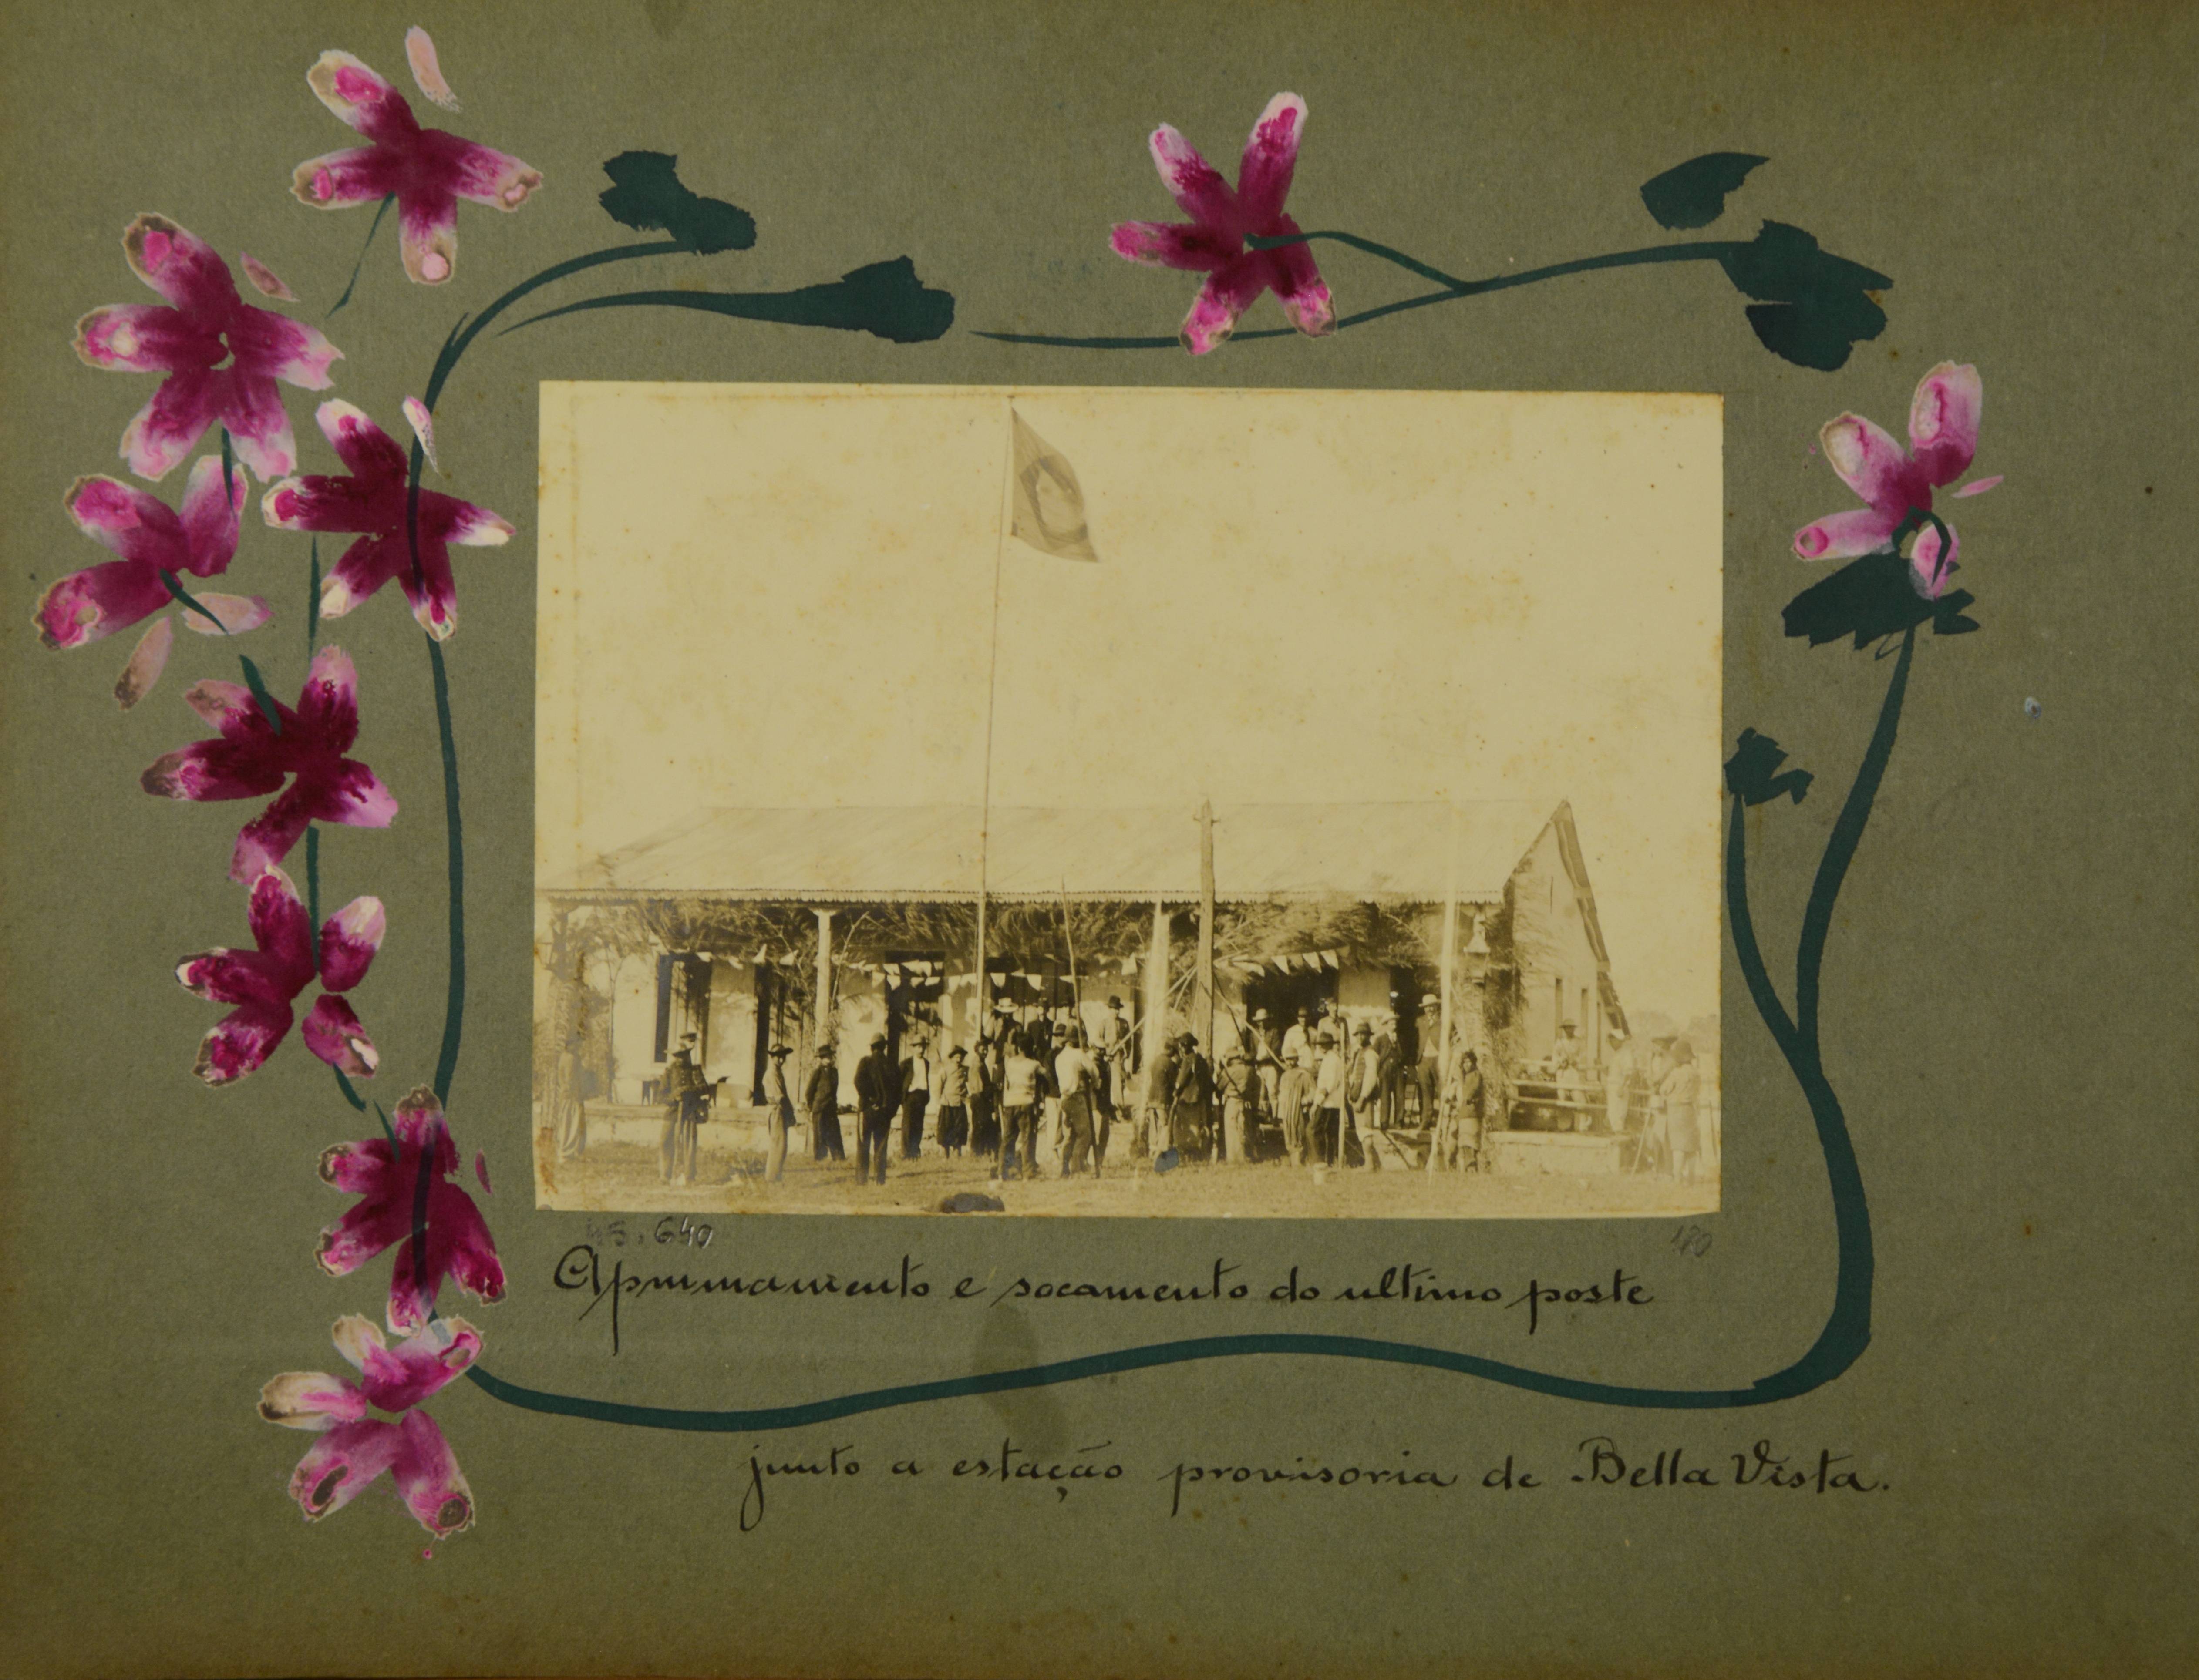 45.640
180
Aprumamento e socamento do ultimo poste
junto a estação provisoria de Bella Vista.